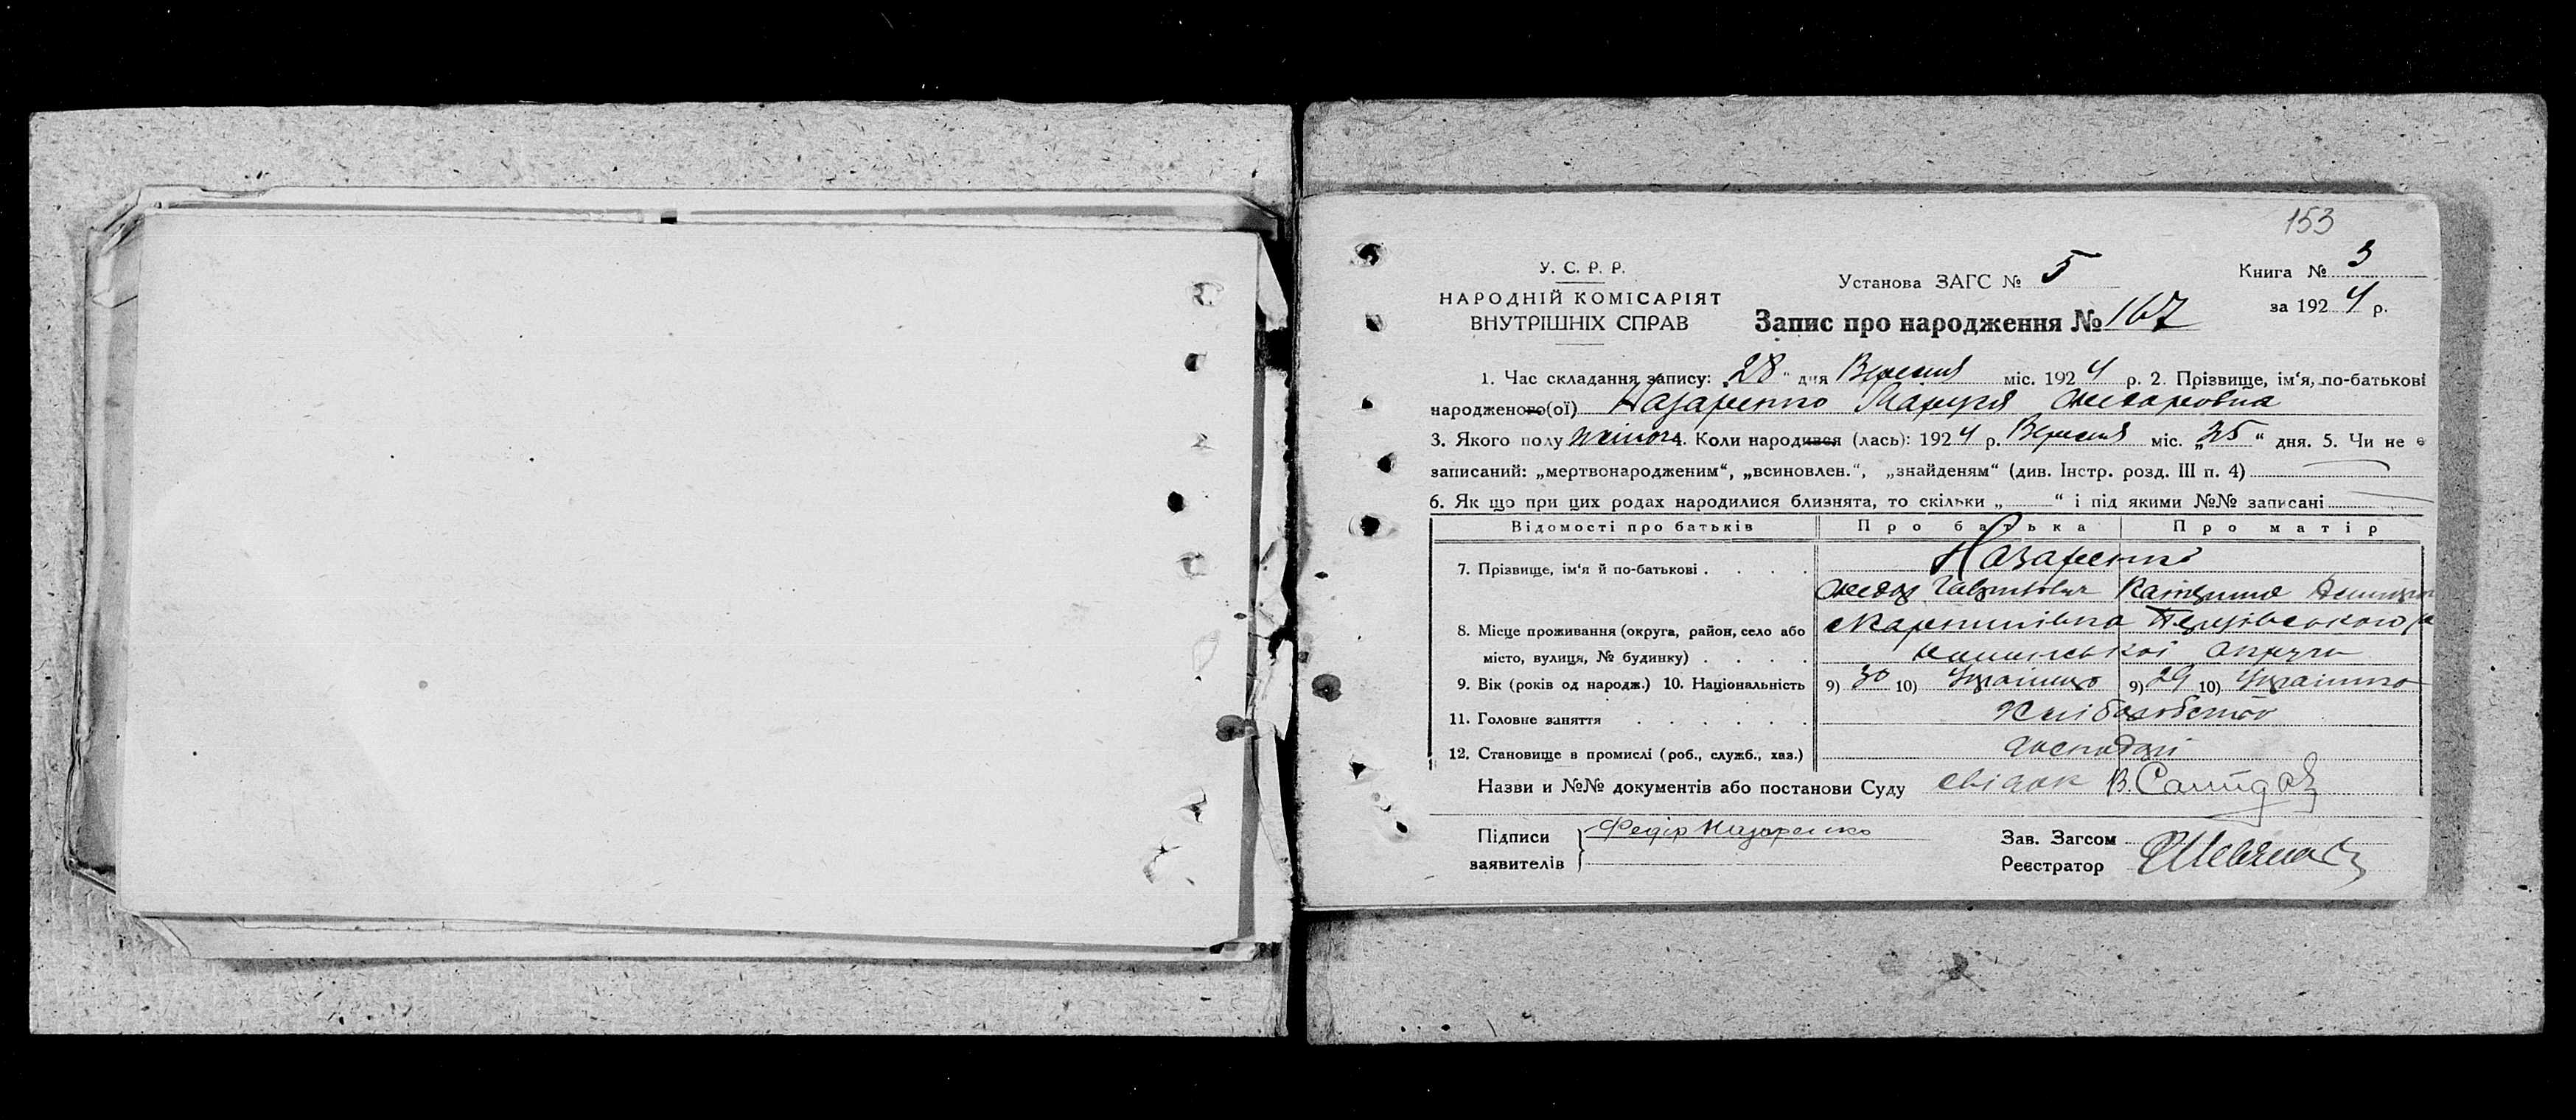 153
У. С. Р. Р.
НАРОДНІЙ КОМІСАРІЯТ
ВНУТРІШНІХ СПРАВ
Установа ЗАГС № 5
Книга № 3
за 1924 р.
Запис про народження № 167
1. Час складання запису: „28“ дня Вересня міс. 1924 р. 2. Прізвище, ім‘я, по-батькові
народженого(ої) Назаренко Маруся
3. Якого полу жіноч 4. Коли народився (лась): 1924 р. Вересня міс. „25“ дня. 5. Чи не є
записаний: „мертвонародженим“, „всиновлен.“, „знайденям“ (див. Інстр. розд. III п. 4)
6. Як що при цих родах народилися близнята, то скільки „ “ і під якими №№ записані
Відомості про батьків Про батька Про матір
7. Прізвище, ім‘я й по-батькові Назаренко
Катерина
8. Місце проживання (округа, район, село або
місто, вулиця, № будинку) округи
9. Вік (років од народж.) 10. Національність 9) 30 10) 9) 29 10)
11. Головне заняття Хліборобство
12. Становище в промислі (роб., служб., хаз.) господарі
Назви и №№ документів або постанови Суду свідок В.
Підписи
заявителів Федір Назаренко
Зав. Загсом
Реєстратор